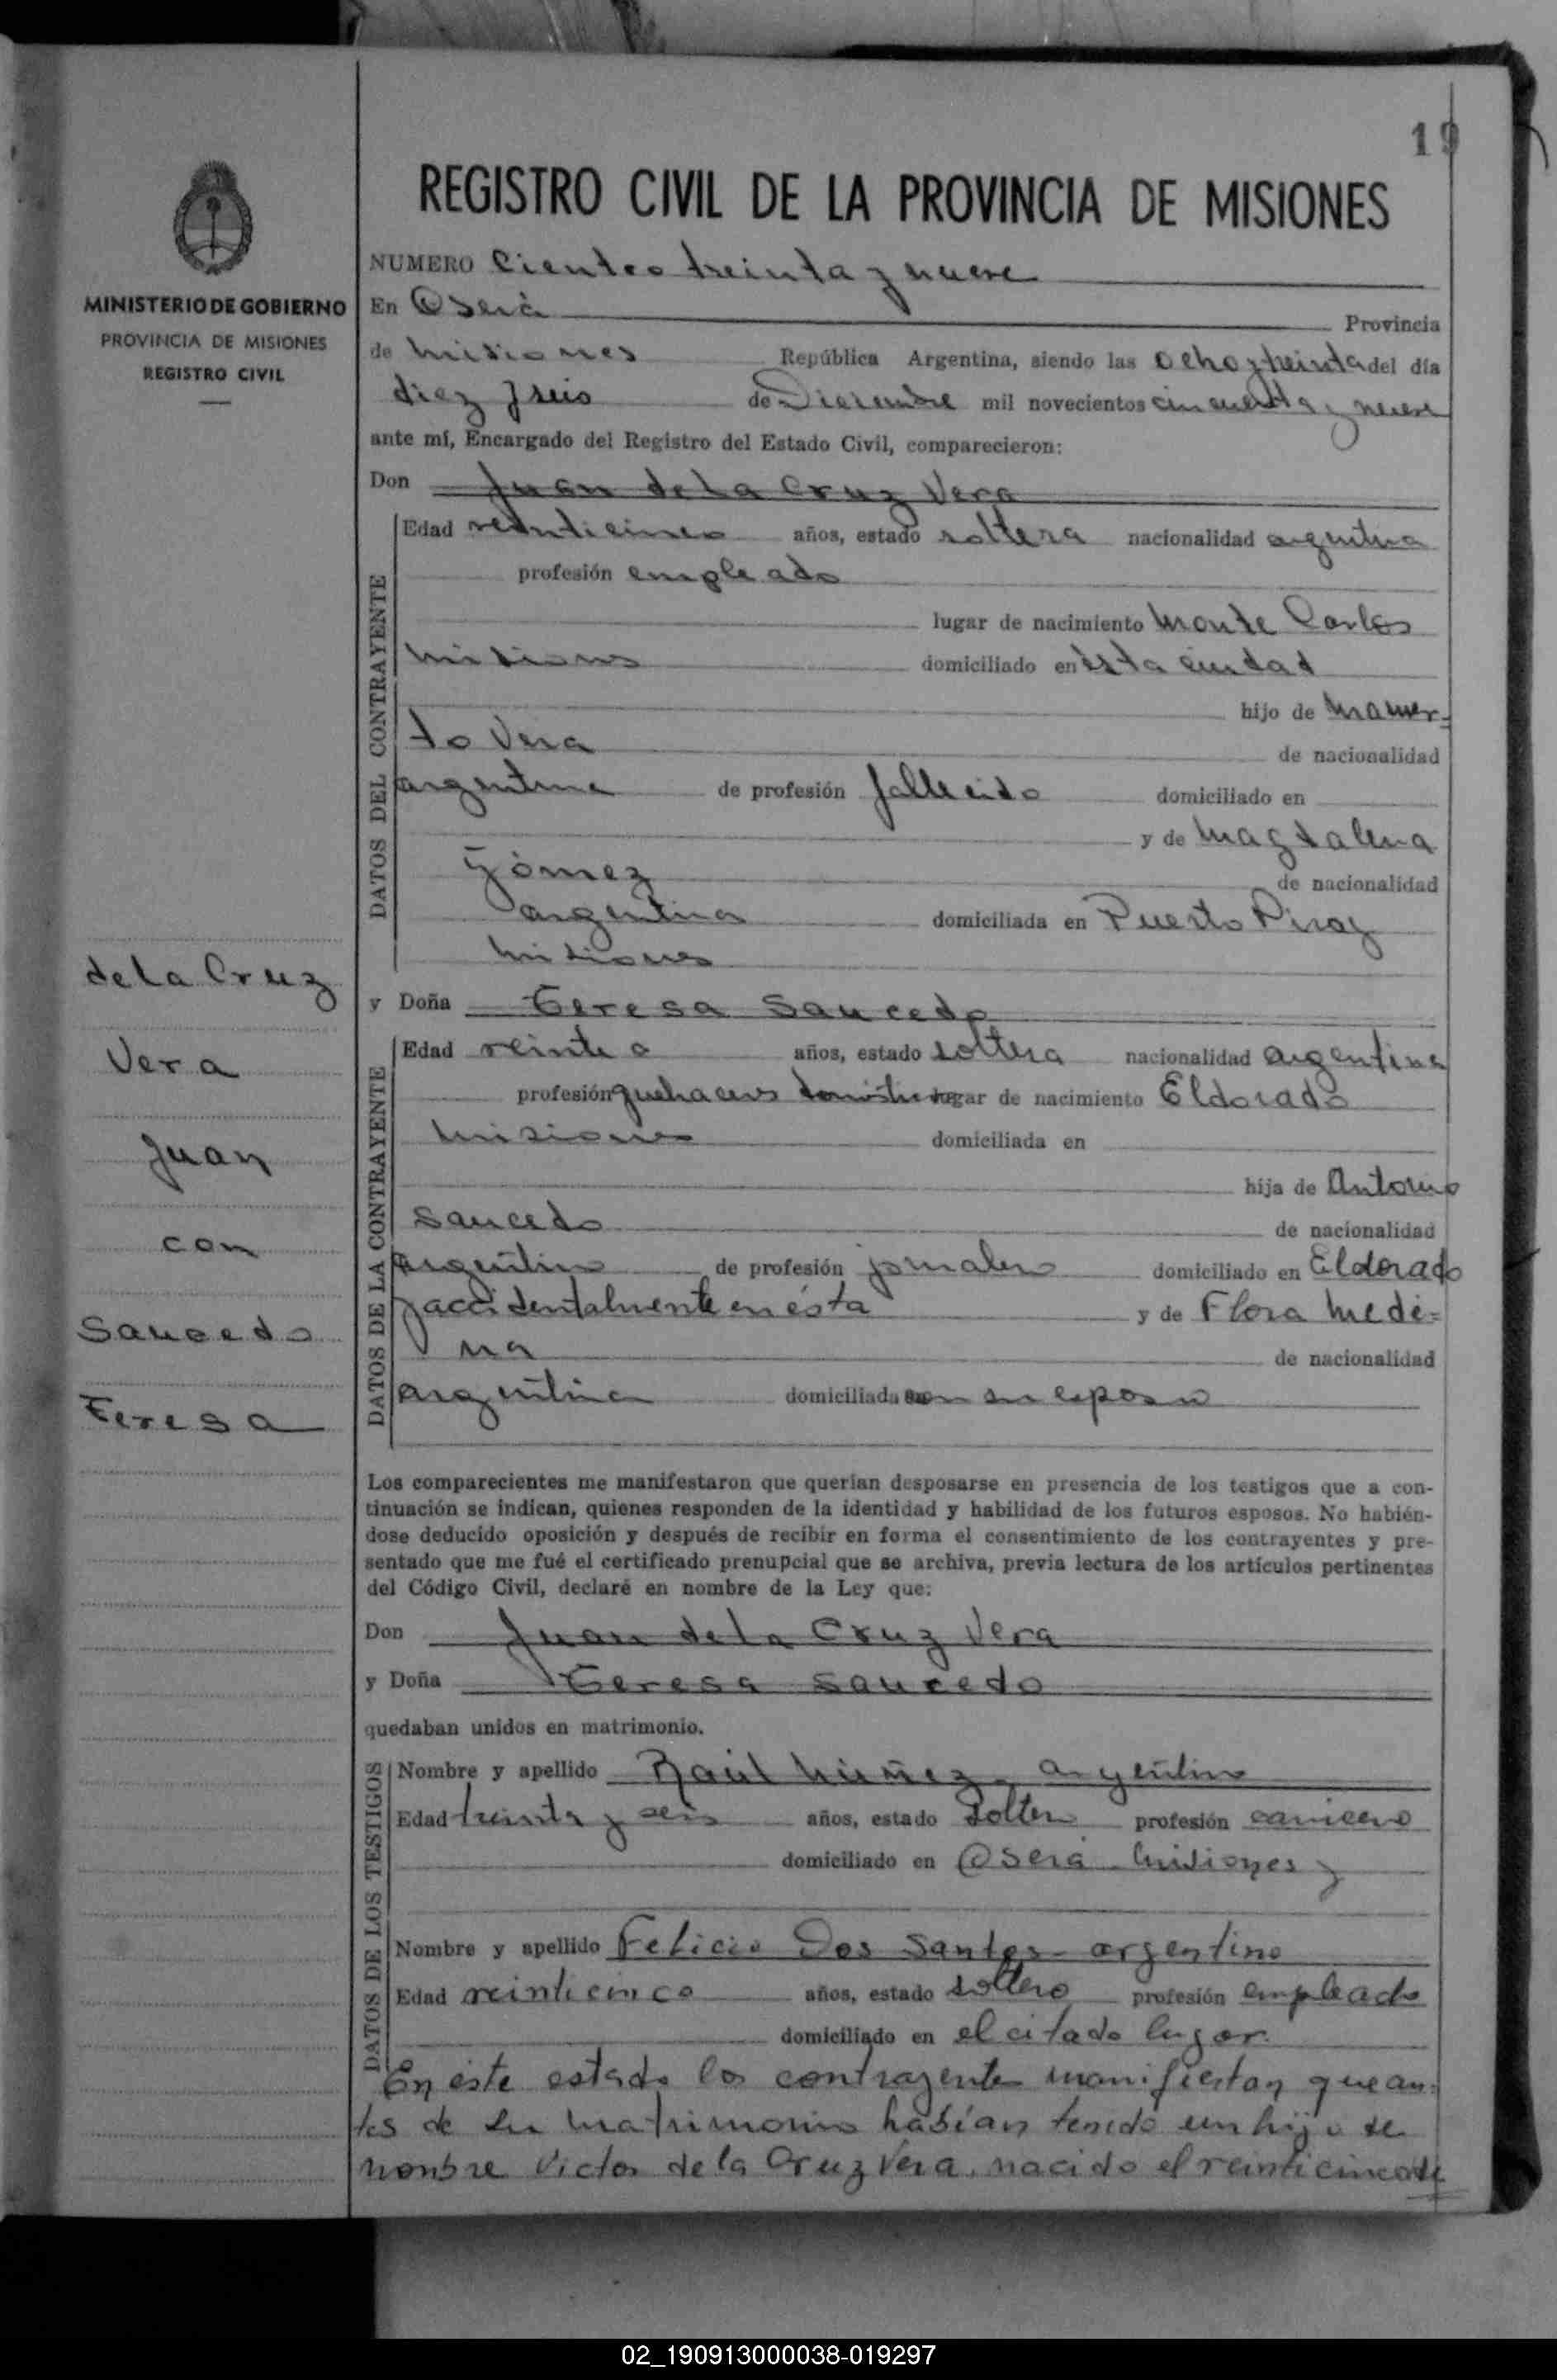 19
REGISTRO CIVIL DE LA PROVINCIA DE MISIONES
MINISTERIO DE GOBIERNO
PROVINCIA DE MISIONES
REGISTRO CIVIL
NUMERO Ciento treinta y nueve
En Oberá Provincia
de Misiones República Argentina, siendo las ocho y treinta del día
diez y seis de Diciembre mil novecientos cincuenta y nueve
ante mí, Encargado del Registro del Estado Civil, comparecieron:
Don Juan de La Cruz Vera
DATOS DEL CONTRAYENTE
Edad veinticinco años, estado soltera nacionalidad argentina
profesión empleado
lugar de nacimiento Monte Carlos
Misiones domiciliado en ésta ciudad
hijo de Mamer-
to Vera de nacionalidad
argentina de profesión fallecido domiciliado en
y de Magdalena
Gómez de nacionalidad
argentina domiciliada en Puerto Piray
Misiones
de La Cruz
Vera
Juan
con
Saucedo
Teresa
y Doña Teresa Saucedo
DATOS DE LA CONTRAYENTE
Edad veinte años, estado soltera nacionalidad argentina
profesión quehaceres domésticos lugar de nacimiento Eldorado
Misiones domiciliada en
hija de Antonio
Saucedo de nacionalidad
argentino de profesión jornalero domiciliado en Eldorado
y accidentalmente en ésta y de Flora Medi=
na de nacionalidad
argentina domiciliada con su esposo
Los comparecientes me manifestaron que querían desposarse en presencia de los testigos que a con-
tinuación se indican, quienes responden de la identidad y habilidad de los futuros esposos. No habién-
dose deducido oposición y después de recibir en forma el consentimiento de los contrayentes y pre-
sentado que me fué el certificado prenupcial que se archiva, previa lectura de los artículos pertinentes
del Código Civil, declaré en nombre de la Ley que:
Don Juan de la Cruz Vera
y Doña Teresa Saucedo
quedaban unidos en matrimonio.
DATOS DE LOS TESTIGOS
Nombre y apellido Raúl Núñez, argentino
Edad treinta y seis años, estado soltero profesión carnicero
domiciliado en Oberá Misiones y
Nombre y apellido Felicio Dos Santos - argentino
Edad veinticinco años, estado soltero profesión empleado
domiciliado en el citado lugar.
En éste estado los contrayentes manifiestan que an=
tes de su matrimonio habían tenido un hijo de
nombre Victor de la Cruz Vera, nacido el veinticinco de
02_190913000038-019297